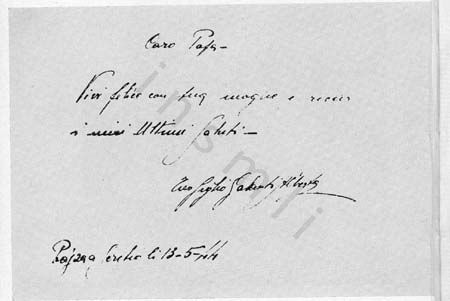 Caro Papà -
Vivi felice con tua moglie e ricevi
i miei Ultimi Saluti -
Tuo figlio Alberto
li 13-5-44
insmli